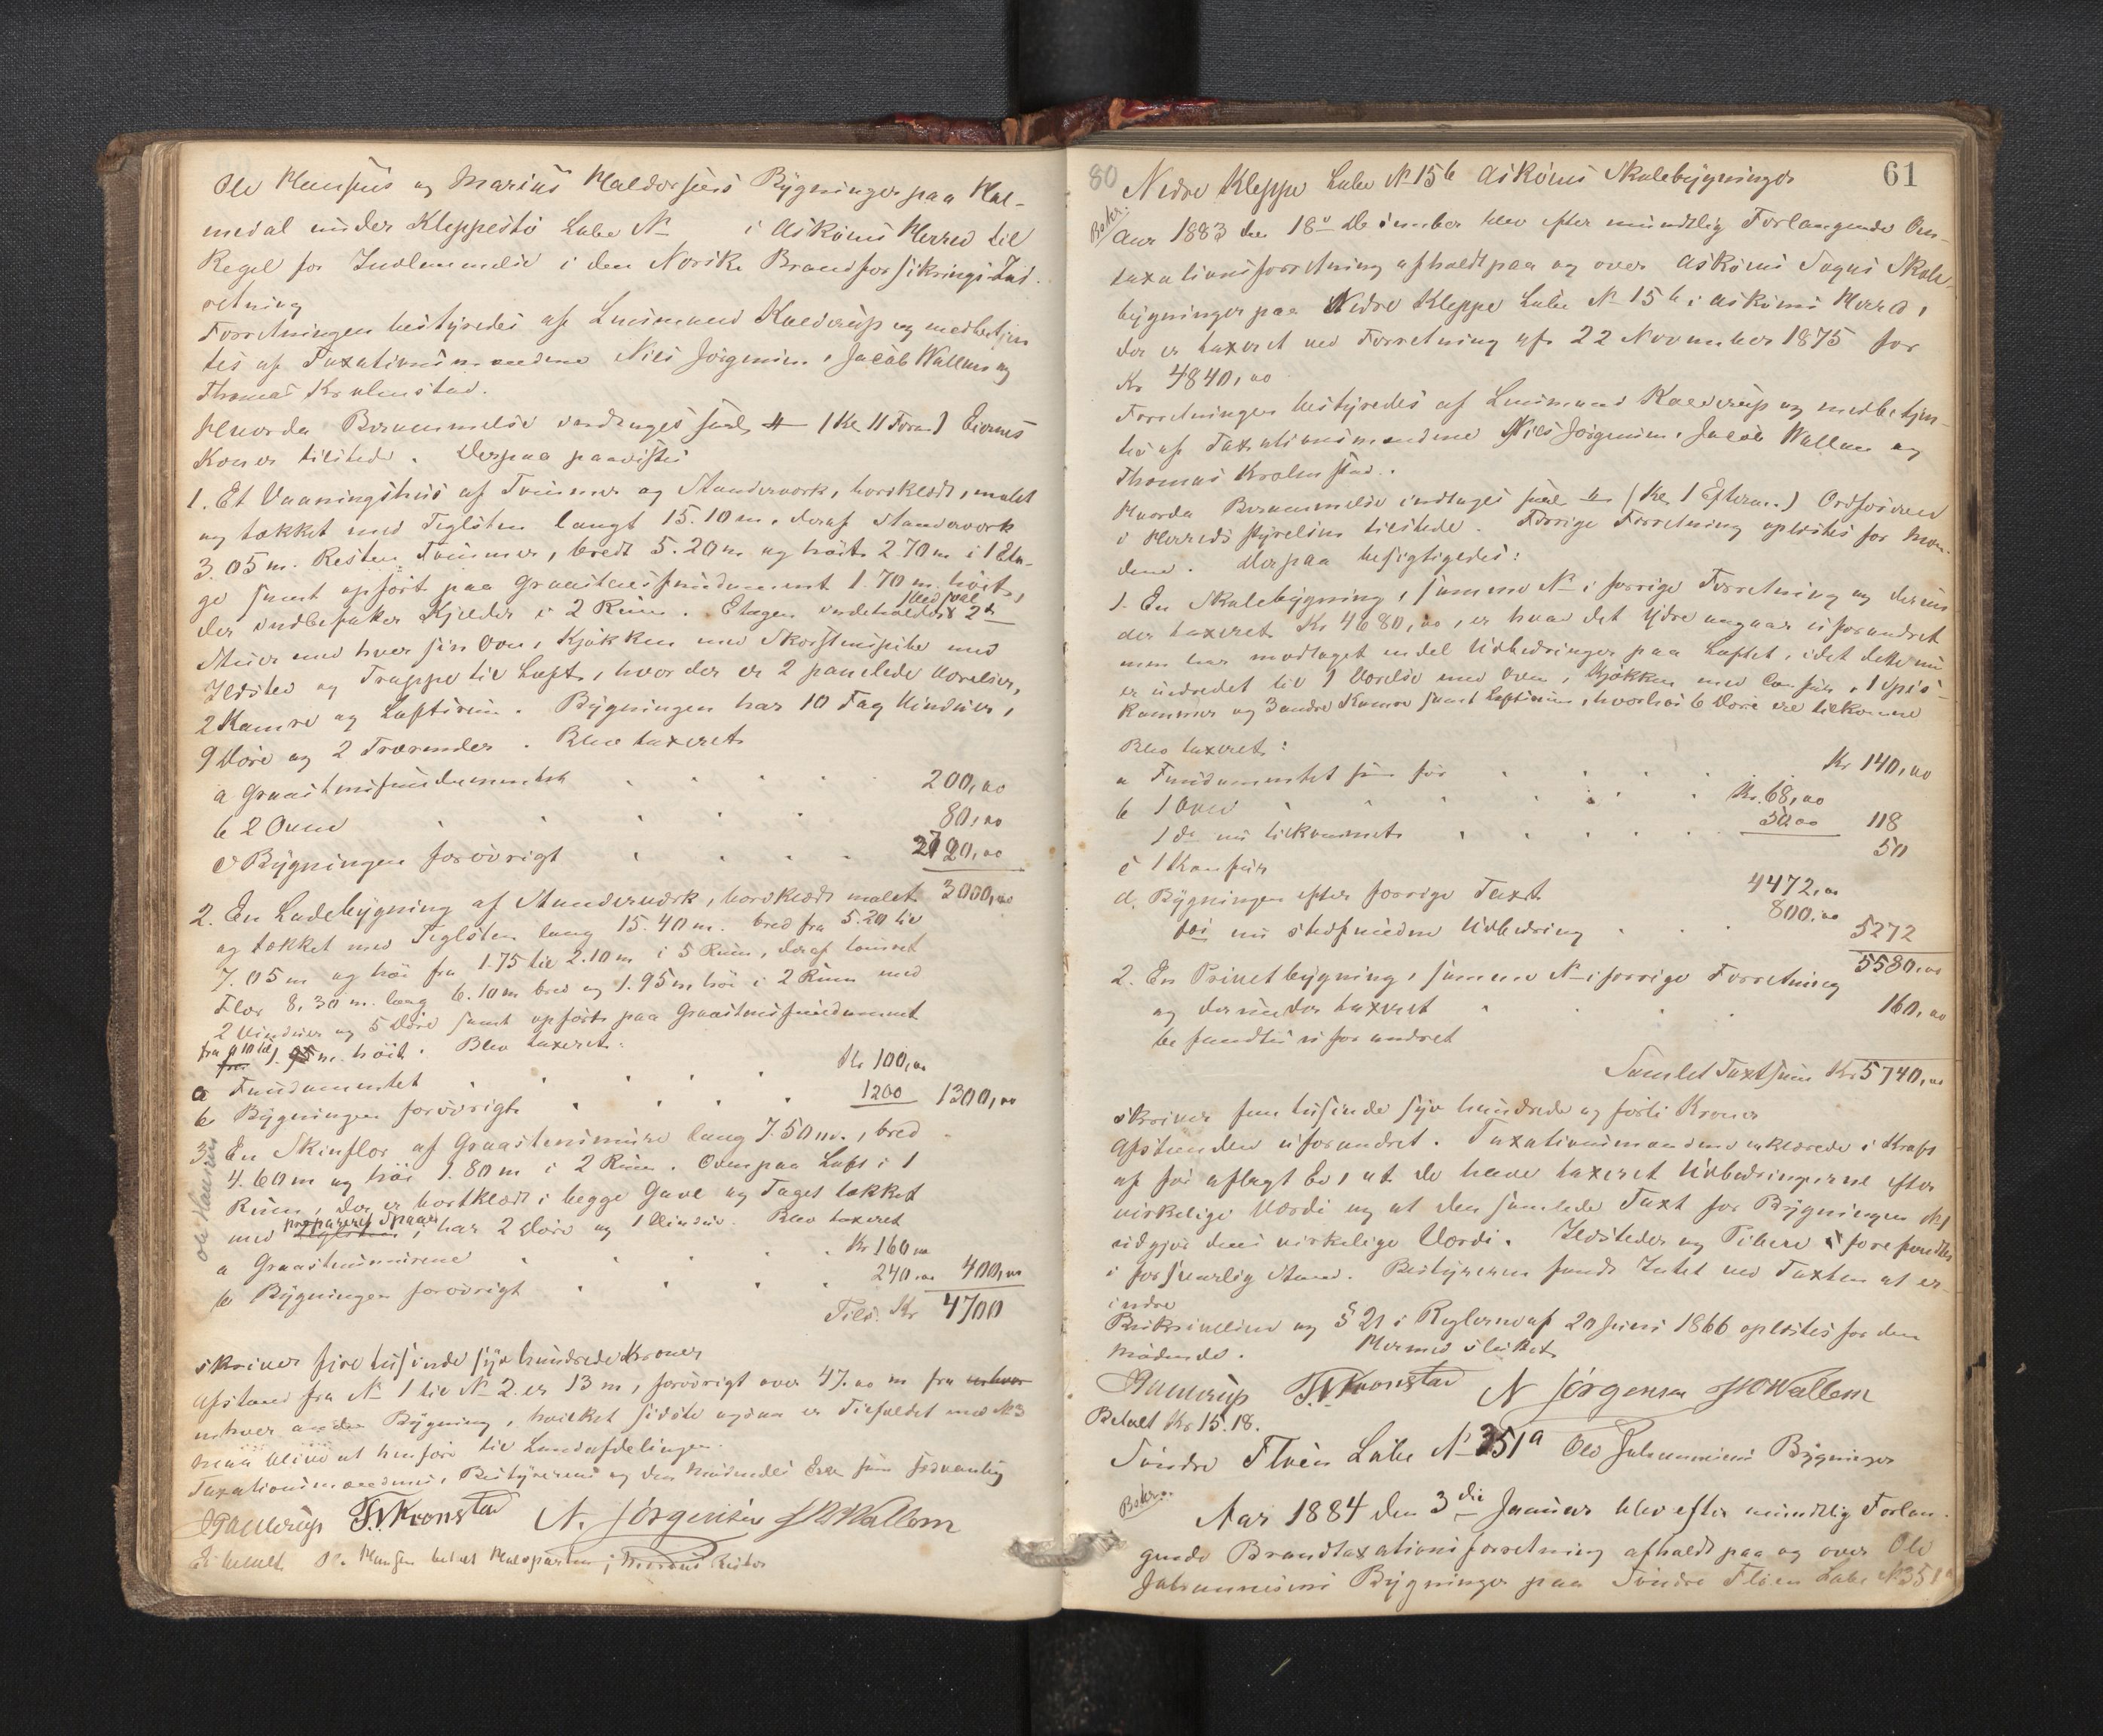 Ole Hansens og Marius Haldorsens Bygninger paa Hal-
medal under Kleppestø Løbe No i Askøens Herred til
Regel for Indlemmelse i den Norske Brandforsikrings Ind-
retning
Forretningen bestyredes af Lensmand Kaldrup og medbetjen
tes af Taxationsmændene Nils Jørgensen, Jacob Wallem og
Thomas Kronstad.
Hvorda Berammelse indtages (Kl 11 Form) Eiernes
Koner tilstede. Derpaa paavistes
1. Et Vaaningshus af Tømmer og Stenderværk, bordklædt, malet
og tækket med Teglsten langt 15.10 m, deraf Stenderværk
3.05 m. Resten Tømmer, bredt 5.20 m og høit 2.70 m i 1 Eta-
ge samt opført paa Graastensfundament 1.70 m. høit,
der indbefatter Kjelder i 2 Rum. Etagen indeholder 2de
Stuer med hver sin Ovn, Kjøkken med Skorstenspibe med
Ildsted og Trappe til Loft, hvor der er 2 panelede Værelser,
2 Kamre og Loftsrum. Bygningen har 10 Fag Vinduer,
9 Døre og 2 Trærender. Blev taxeret
a Graastensfundamentet 200,00
b 2 Ovne 80,00
c Bygningen forøvrigt 2720,00
3000,00
2. En Ladebygning af Stenderværk, bordklædt malet
og tækket med Teglsten lang 15.40 m. bred fra 5.20 til
7.05 m og høi fra 1.75 til 2.10 m i 5 Rum, deraf tømret
Flor 8,30 m. lang 6.10 m bred og 1.95 m høi i 2 Rum med
2 Vinduer og 5 Døre samt opført paa Graastensfundament
fra 0 10 til 1. 95 m. høit. Blev taxeret:
a Fundamentet Kr 100,00
b Bygningen forøvrigt 1200 1300,00
3. En Skinflor af Graastensmure lang 7.50 m., bred
4.60 m og høi 1.80 m i 2 Rum. Ovenpaa Loft i 1
Rum, der er bordklædt i begge Gavle og Taget tækket
med præpareret Spaan, har 2 Døre og 1 Vindue. Blev taxeret
a Graastensmurene Kr 160,00
b Bygningen forøvrigt 240,00 400,00
Tils. Kr 4700
Ole Hansen
skriver fire tusinde syv hundrede Kroner
Afstand fra No 1 til No 2 er 13 m, forøvrigt over 47.00 m fra enhver
enhver anden Bygning, hvilket sidste ogsaa er Tilfældet med No 3
maa blive at henføre til Landafdelingen.
Taxationsmændenes, Bestyrerens og den Mødendes Erkl. som sædvanlig
T. Kronstad N. Jørgensen J Wallem
Ei betalt Ole Hansen betalt Halvparten
80 61
Nedre Kleppe Løbe No 15b Askøens Skolebygninger
Aar 1883 den 18de December blev efter mundtlig Forlangende Om-
taxationsforretning afholdt paa og over Askøens Sogns Skole-
bygninger paa Nedre Kleppe Løbe No 15b i Askøens Herred,
der er taxeret ved Forretning af 22 November 1875 for
Kr 4840,00
Forretningen bestyredes af Lensmand Kaldrup og medbetjen-
tes af Taxationsmændene Nils Jørgensen, Jacob Wallem og
Thomas Kronstad.
Hvorda Berammelse indtages (Kl 1 Efterm.) Ordføreren
i Herredsstyrelsen tilstede. Forrige Forretning oplæstes for Mæn-
dene. Derpaa besigtigedes:
1. En Skolebygning, samme No i forrige Forretning og derun
der taxeret Kr 4680,00, er hvad det Ydre angaar uforandret
men har modtaget endel Udbedringer paa Loftet, idet dette nu
er indredet til 1 Værelse med Ovn, Kjøkken med Comfur, 1 Spis-
kammer og 3 andre Kamre samt Loftsrum, hvorhos 6 Døre ere tilkomne
Blev taxeret:
a Fundamentet som før Kr 140,00
b 1 Ovn Kr. 68,00
1 do nu tilkommet 50,00 118
c 1 Komfur 50
d. Bygningen efter forrige Taxt 4472,00
for nu stedfunden Udbedring 800,00 5272
5580,00
2. En Privetbygning, samme No i forrige Forretning
og derunder taxeret 160,00
befandtes uforandret
Samlet Taxtsum Kr 5740,00
skriver fem tusinde syv hundrede og førti Kroner
Afstanden uforandret. Taxationsmændene erklærede i Kraft
af før aflagt Ed, at de have taxeret Udbedringerne efter
virkelige Værdi og at den samlede Taxt for Bygningen No 1
udgjør dens virkelige Værdi. Ildsteder og Piberne forefandtes
i forsvarlig Stand. Bestyreren fandt Intet ved Taxten at er-
indre
Beskrivelsen og § 21 i Reglerne af 20 Juni 1866 oplæstes for den
Mødende. Hermed sluttet
T. Kronstad N Jørgensen J Wallem
Betalt Kr 15.18.
Søndre Fløien Løbe No 351a Ole Johannesens Bygninger
Aar 1884 den 3die Januar blev efter mundtlig Forlan-
gende Brandtaxationsforretning afholdt paa og over Ole
Johannesens Bygninger paa Søndre Fløien Løbe No 351a